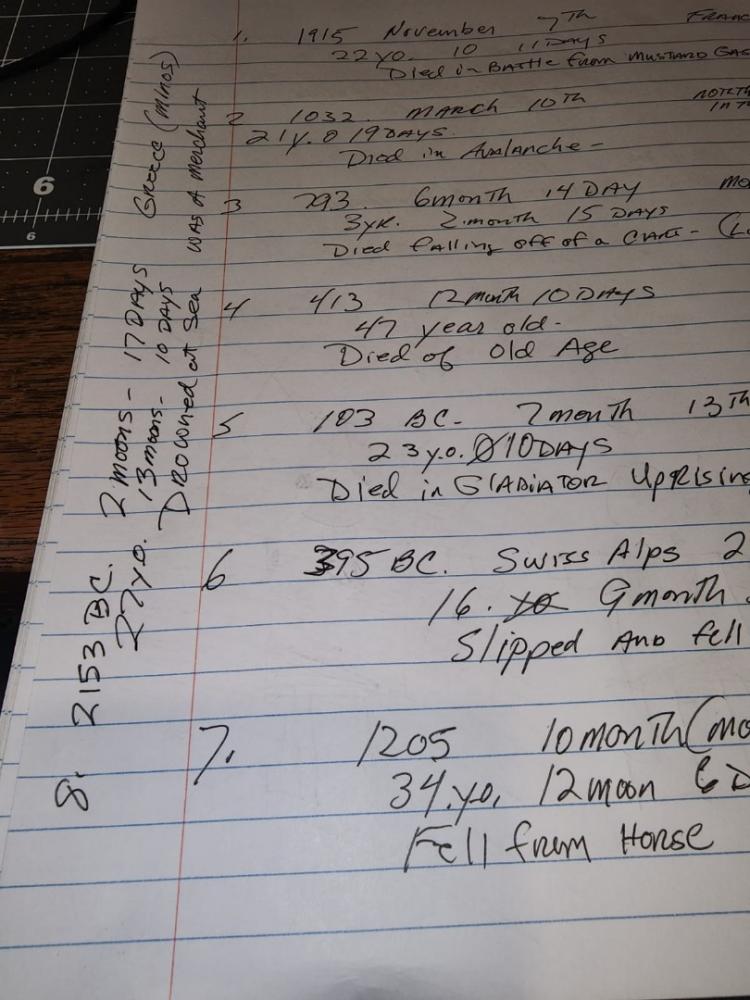 1. 1915 November 7TH FRANC
22 yo. 10 11 DAYS
Died in BATTLE from MUSTARD GAS
2 1032. MARCH 10TH
21 y.o 19 DAYS.
Died in Avalanche -
3 793. 6month 14 DAY
3yr. 2.month 15 DAYS
Died falling off of a CART - (L
4 413 12month 10 DAYS
47 year old -
Died of Old Age
5 103 BC. 7month 13TH
23 y.o. 10 DAYS
Died in GlADiATOR UPRISING
6 395 BC. Swiss Alps 2
16. yo 9month
Slipped AND fell
7. 1205 10 month (mo
34.yo. 12 moon 6 D
Fell from Horse
8. 2153 BC. 2 moons - 17 DAYS Greece (minos)
27yo. 13 moons - 10 DAYS
DROWNED at Sea WAS A merchant
6
6